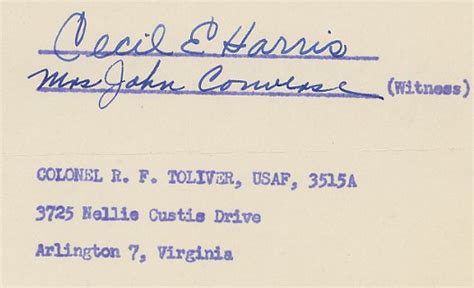 Cecil E Harris
Mrs John Converse (Witness)
COLONEL R. F. TOLIVER, USAF, 3515A
3725 Nellie Custis Drive
Arlington 7, Virginia